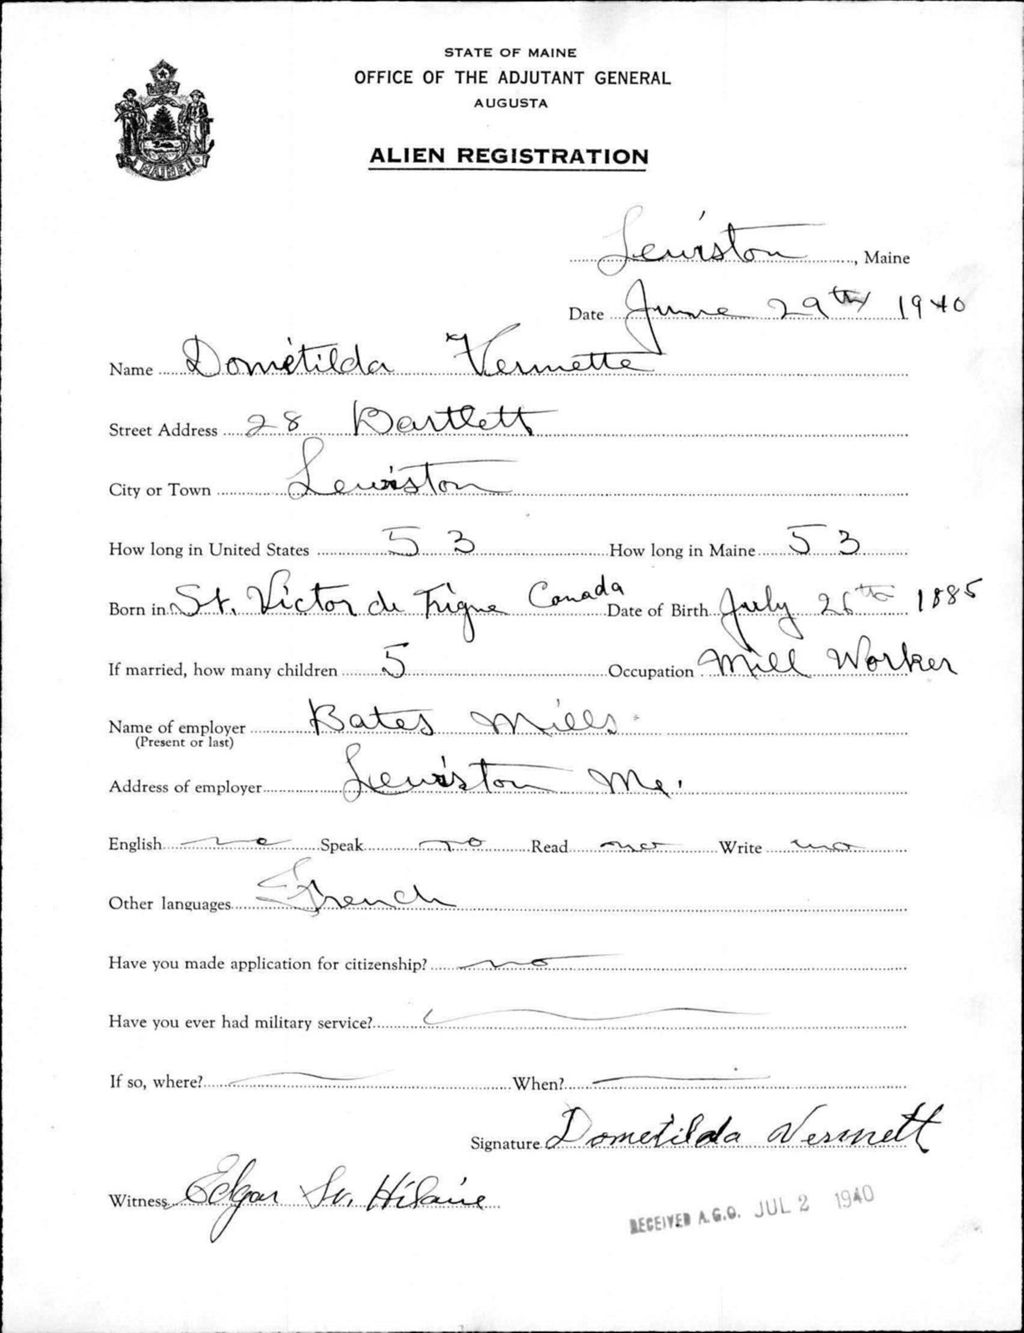 STATE OF MAINE
OFFICE OF THE ADJUTANT GENERAL
AUGUSTA
ALIEN REGISTRATION
MAINE
Lewiston, Maine
Date June 29th 1940
Name Dométilda Vermette
Street Address 28 Bartlett
City or Town Lewiston
How long in United States 53 How long in Maine 53
Born in St. Victor de Trigne Canada Date of Birth July 26th 1885
If married, how many children 5 Occupation Mill Worker
Name of employer Bates Mills
(Present or last)
Address of employer Lewiston Me.
English no Speak no Read no Write no
Other languages French
Have you made application for citizenship? no
Have you ever had military service?
If so, where? When?
Signature Dometilda Vermett
Witness Edgar St. Hilaire
RECEIVED A.G.O. JUL 2 1940